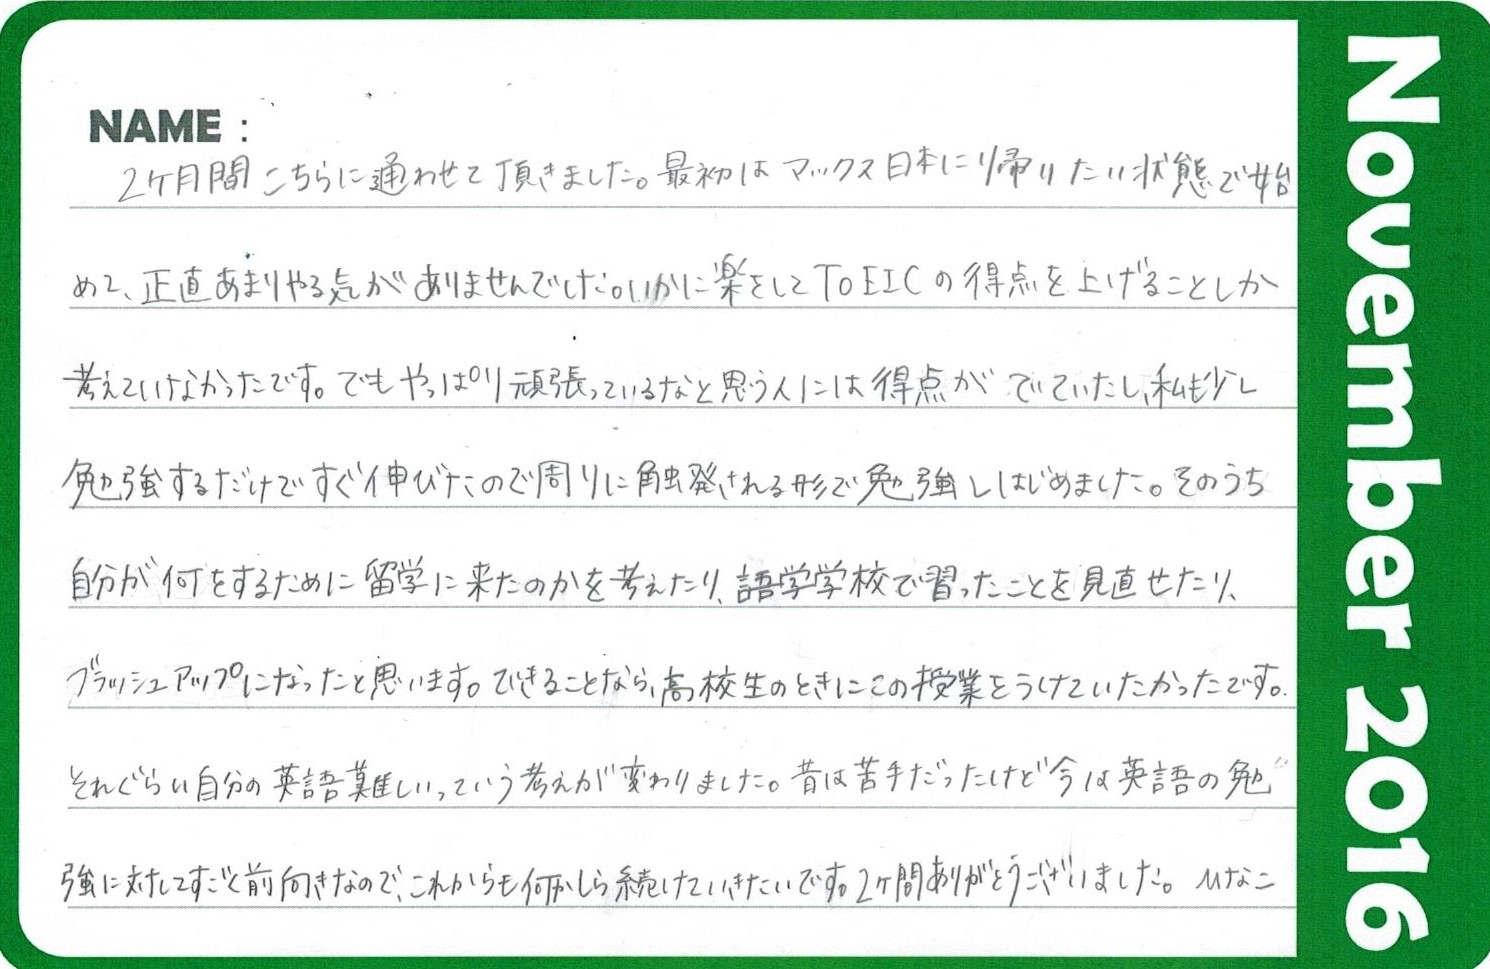 NAME :
2ケ月間こちらに通わせて頂きました。最初はマックス日本に帰りたい状態で始
めて、正直あまりやる気がありませんでした。いかに楽をしてTOEICの得点を上げることしか
考えていなかったです。でもやっぱり頑張っているなと思う人には得点がでていたし、私も少し
勉強するだけですぐ伸びたので周りに触発される形で勉強しはじめました。そのうち
自分が何をするために留学に来たのかを考えたり、語学学校で習ったことを見直せたり、
ブラッシュアップになったと思います。できることなら、高校生のときにこの授業をうけていたかったです。
それぐらい自分の英語難しいっていう考えが変わりました。昔は苦手だったけど今は英語の勉
強に対してすごく前向きなので、これからも何かしら続けていきたいです。2ケ間ありがとうございました。 ひなこ
November 2016